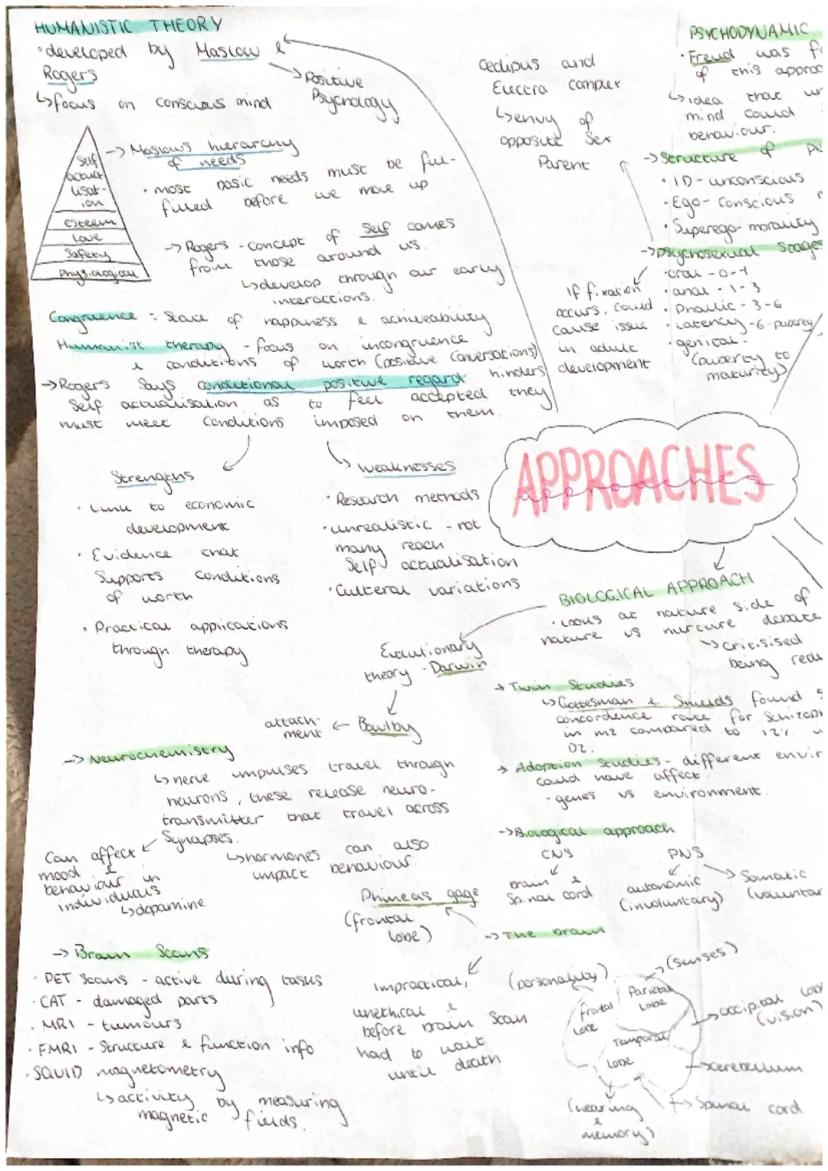 HUMANISTIC THEORY
• developed by Maslow &
Rogers
→ Positive
Psychology
↳ focus on conscious mind
Self
actual
lisat-
ion
esteem
love
Safety
Physiological
→ Maslows hierarchy
of needs
• most basic needs must be ful-
filled before we move up
→ Rogers - concept of Self comes
from those around us.
↳ develop through our early
interactions.
Congruence = State of happiness & achiveability
Humanist therapy - focus on incongruence
& conditions of worth (positive conversations)
→ Rogers Says conditional positive regard hinders
Self actualisation as to feel accepted they
must meet conditions imposed on them.
Strengths
• Link to economic
development
• Evidence that
Supports conditions
of worth
• Practical applications
through therapy
weaknesses
• Research methods
• unrealistic - not
many reach
Self actualisation
• Cultural variations
Oedipus and
Electra complex
↳ envy of
opposite Sex
Parent
PSYCHODYNAMIC
• Freud was
of this
↳ idea that
mind could
behaviour.
→ Structure of
• ID - unconscious
• Ego - Conscious
• Superego - morality
→ psychosexual Stages
• oral - 0-1
• anal - 1-3
• Phallic - 3-6
• Latency - 6-puberty
• genital -
(puberty to
maturity)
If fixation
occurs, could
cause issue
in adult
development
APPROACHES
approaches
BIOLGICAL APPROACH
• Looks at nature side of
nature vs nurture debate
↳ Critisised
being
Evolutionary
theory - Darwin
Bowlby
attach-
ment
→ Twin Studies
↳ Gottesman & Shields found
concordence rate for
in MZ compared to 12%
DZ.
→ Adoption Studies - different
could have affect.
• genes vs environment.
→ Neurochemistry
↳ nerve impulses travel through
neurons, these release neuro-
transmitter that travel across
Synapses.
↳ hormones can also
impact behaviour.
Can affect
mood &
behaviour in
individuals
↳ dopamine
→ Biological approach
CNS
brain &
Spinal cord
PNS
autonomic
(involuntary)
Somatic
Phineas gage
(frontal
lobe)
→ The brain
Impractical,
unethical &
before brain scan
had to wait
until death
(personality)
frontal
lobe
(senses)
Parietal
Lobe
occipital
(vision)
Temporal
Lobe
cerebellum
Spinal cord
(hearing
&
memory)
→ Brain Scans
• PET Scans - active during tasks
• CAT - damaged parts
• MRI - tumours
• FMRI - Structure & function info
• SQUID magnetometry
↳ activity by measuring
magnetic fields.